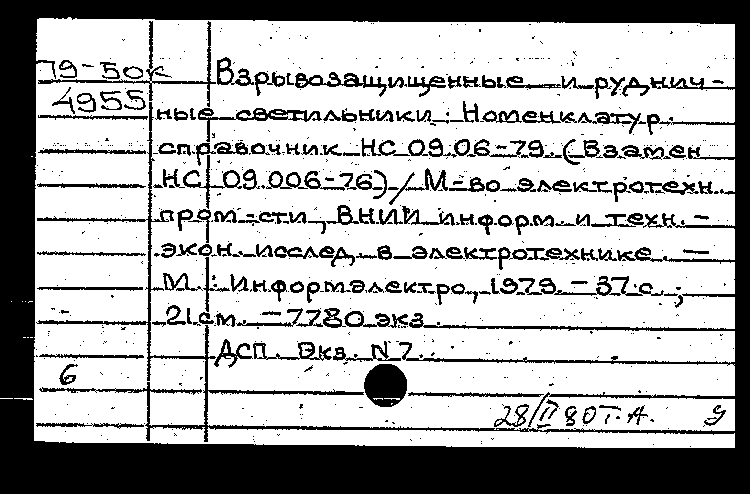 79-50к Взрывозащищенные и руднич-
4955 ные светильники: Номенклатур.
справочник НС 09.06-79. (Взамен
НС 09.006-76) / М-во электротехн.
пром-сти, ВНИИ информ. и техн.-
экон. исслед. в электротехнике. —
М.: Информэлектро, 1979. - 37 с.;
21 см. - 7780 экз.
ДСП. Экз. N 7.
6
28/II 80 Т.А.